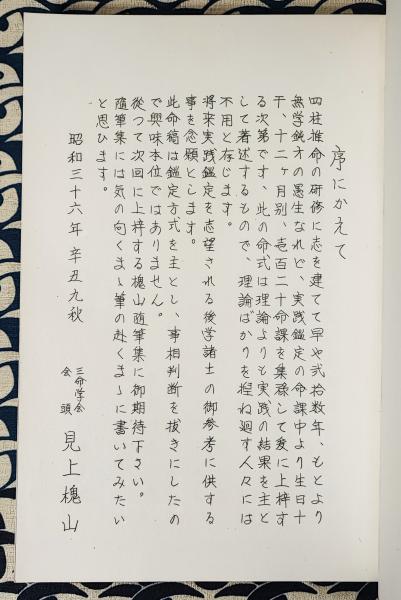 序にかえて
四柱推命の研修に志を建てて早や弐拾数年、もとより
無学鈍才の愚生なれど、実践鑑定の命課中より生日十
干、十二ヶ月別、壱百二十命課を集録して爰に上梓す
る次第です、此の命式は理論よりも実践の結果を主と
して著述するもので、理論ばかりを捏ね廻す人々には
不用と存じます。
将来実践鑑定を志望される後学諸士の御参考に供する
事を念願とします。
此命稿は鑑定方式を主とし、事相判断を抜きにしたの
で興味本位ではありません。
従つて次回に上梓する槐山随筆集に御期待下さい。
随筆集には気の向くまゝ筆の赴くまゝに書いてみたい
と思ひます。
昭和三十六年 辛丑九秋
三命学会
会頭
見上槐山